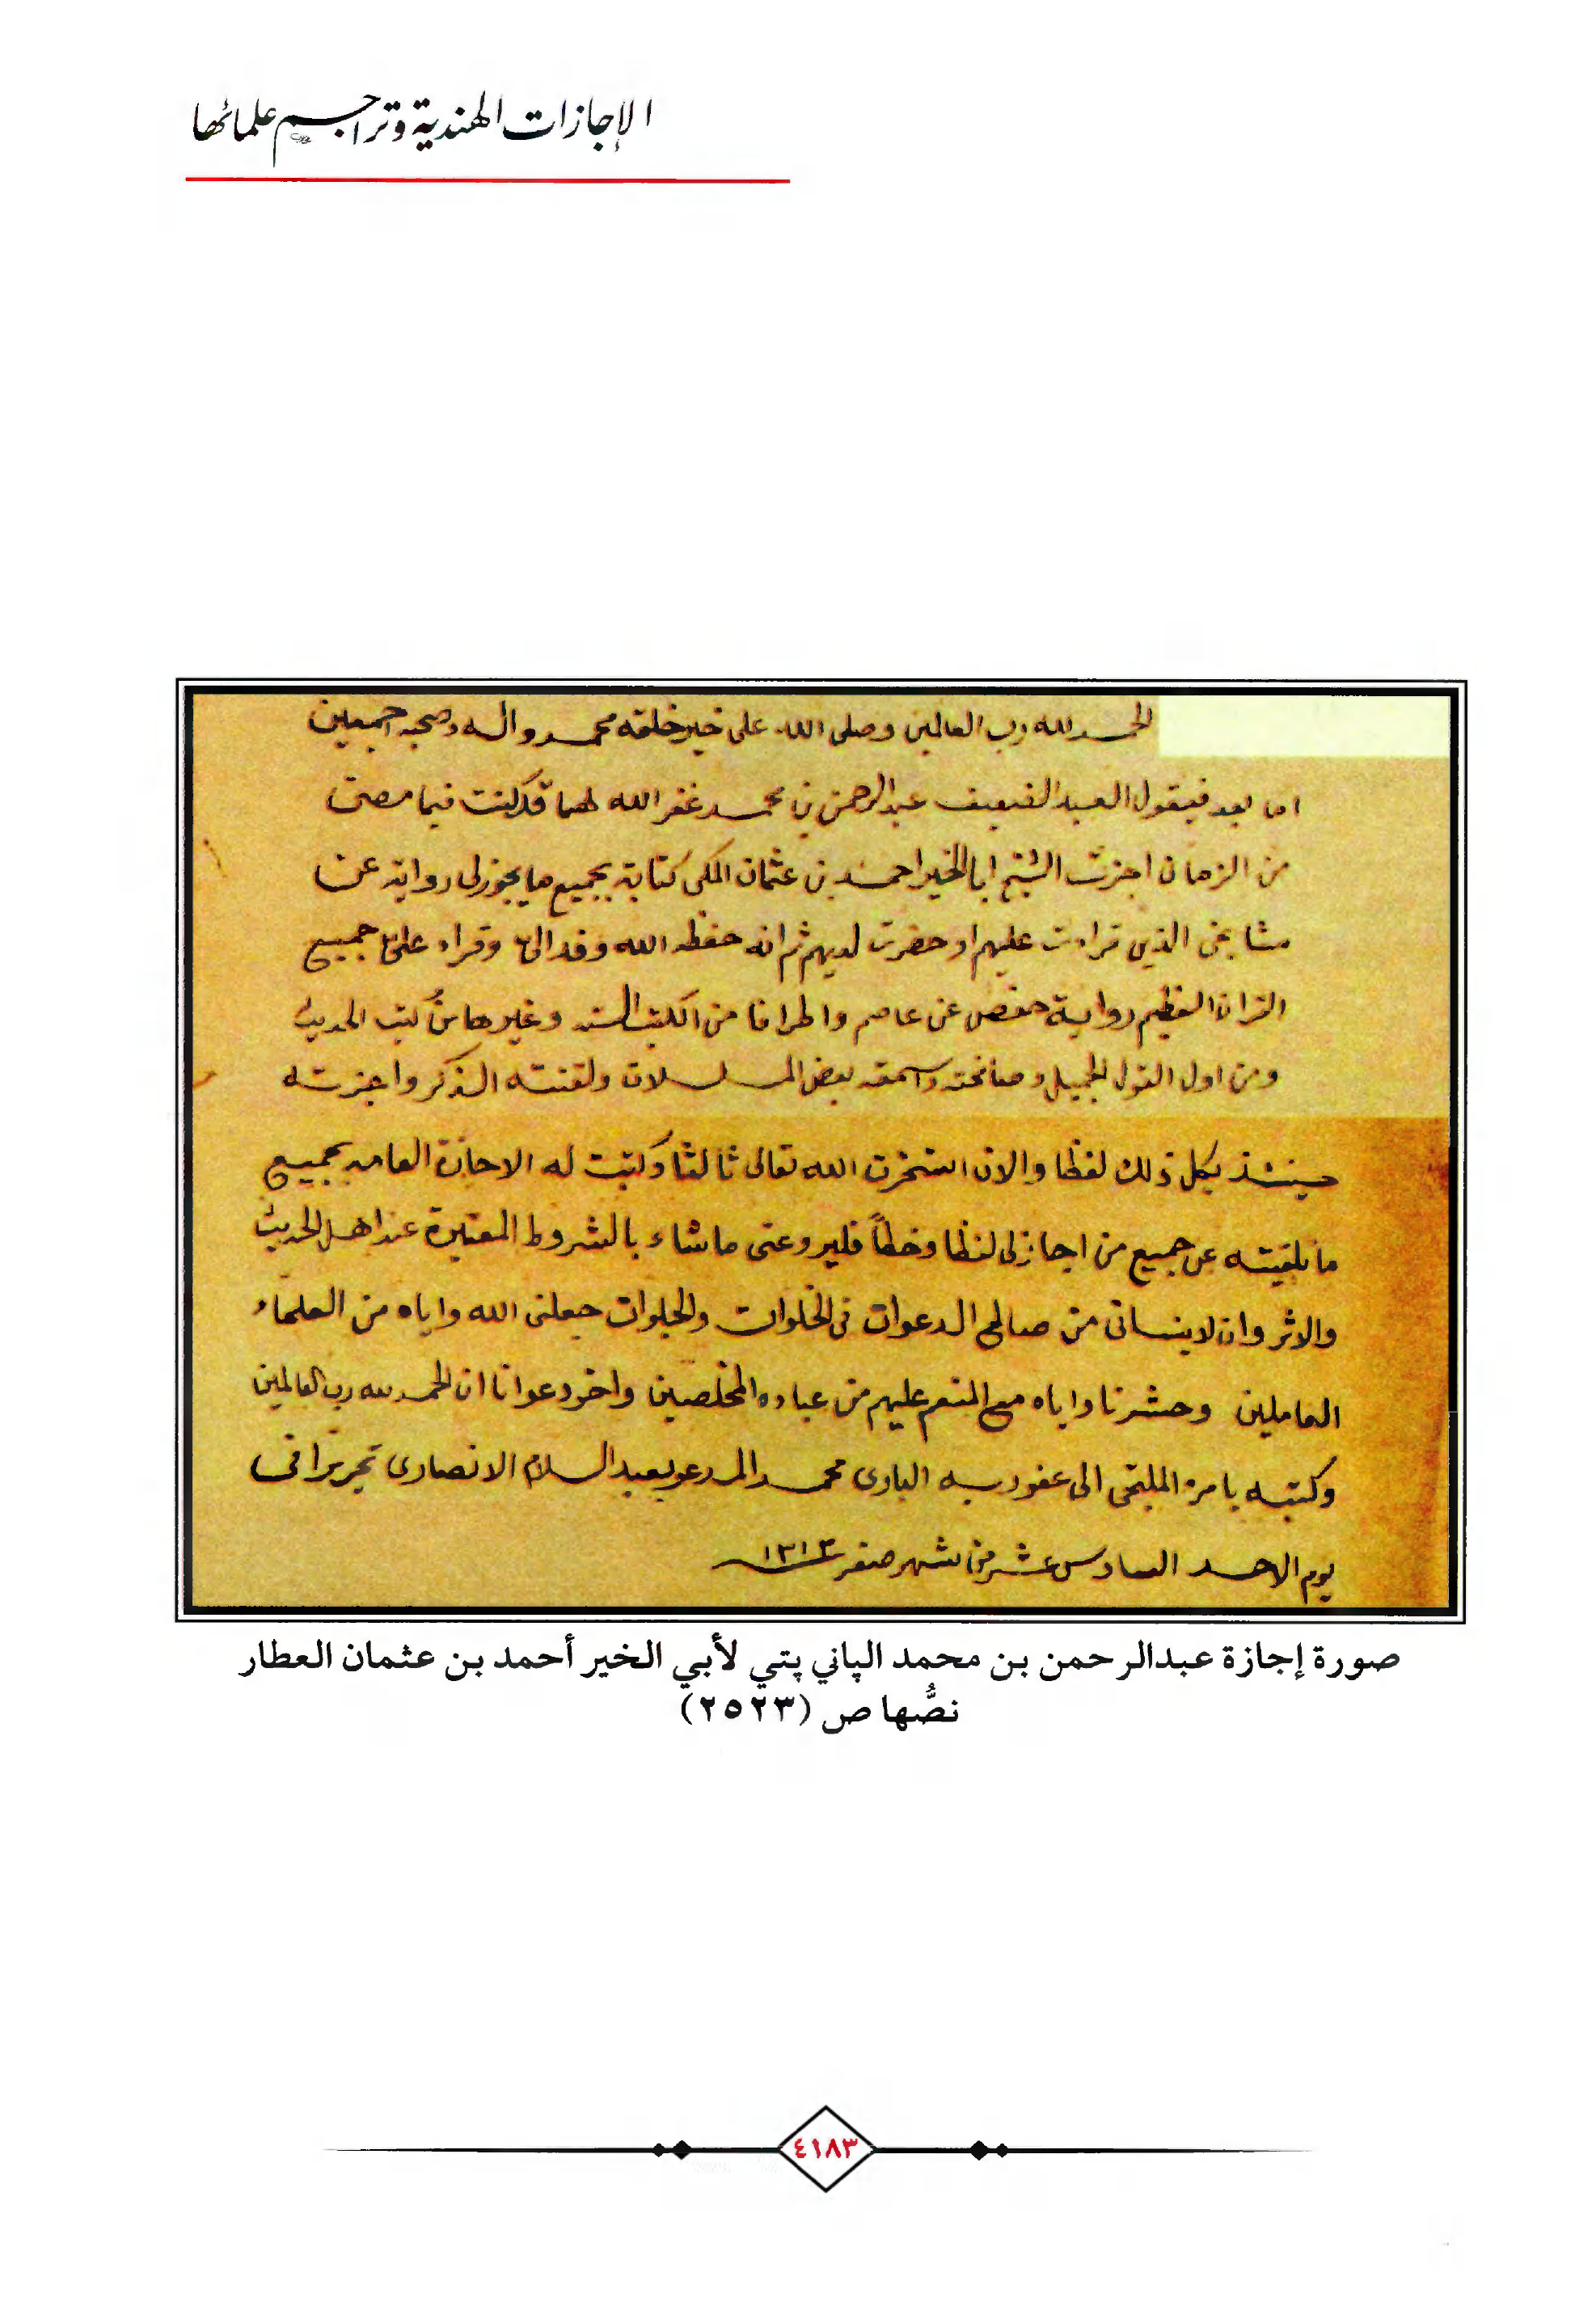 الإجازات الهندية وتراجم علمائها
الحمد لله رب العالمين وصلى الله على خير خلقه محمد واله وصحبه اجمعين
اما بعد فيقول العبد الضعيف عبد الرحمن بن محمد غفر الله لهما قد كنت فيما مضى
من الزمان اجزت الشيخ ابا الخير احمد بن عثمان المكى كتابة بجميع ما يجوز لى روايته عن
مشايخى الذين قراءت عليهم او حضرت لديهم ثم انه حفظه الله وفد الىّ وقراء علىّ جميع
القران العظيم رواية حفص عن عاصم واطرافا من الكتب الستة وغيرها من كتب الحديث
ومن اول القول الجميل وصافحته واسمعته بعض المسلسلات ولقنته الذكر واجزته
حينئذ بكل ذلك لفظا والان استخرت الله تعالى ثالثا وكتبت له الاجازة العامة بجميع
ما تلقيته عن جميع من اجازلى لفظا وخطاً فليرو عنى ما شاء بالشروط المعتبرة عند اهل الحديث
والاثر وان لا ينسانى من صالح الدعوات فى الخلوات والجلوات جعلنى الله واياه من العلماء
العاملين وحشرنا واياه مع المنعم عليهم من عباده المخلصين واخر دعوانا ان الحمد لله رب العالمين
وكتبه بامره الملتجى الى عفو ربه البارى محمد المدعو بعبد السلام الانصارى تحريرا فى
يوم الاحد السادس عشر من شهر صفر ١٣١٣
صورة إجازة عبدالرحمن بن محمد الپاني پتي لأبي الخير أحمد بن عثمان العطار
نصُّها ص (٢٥٢٣)
٤١٨٣